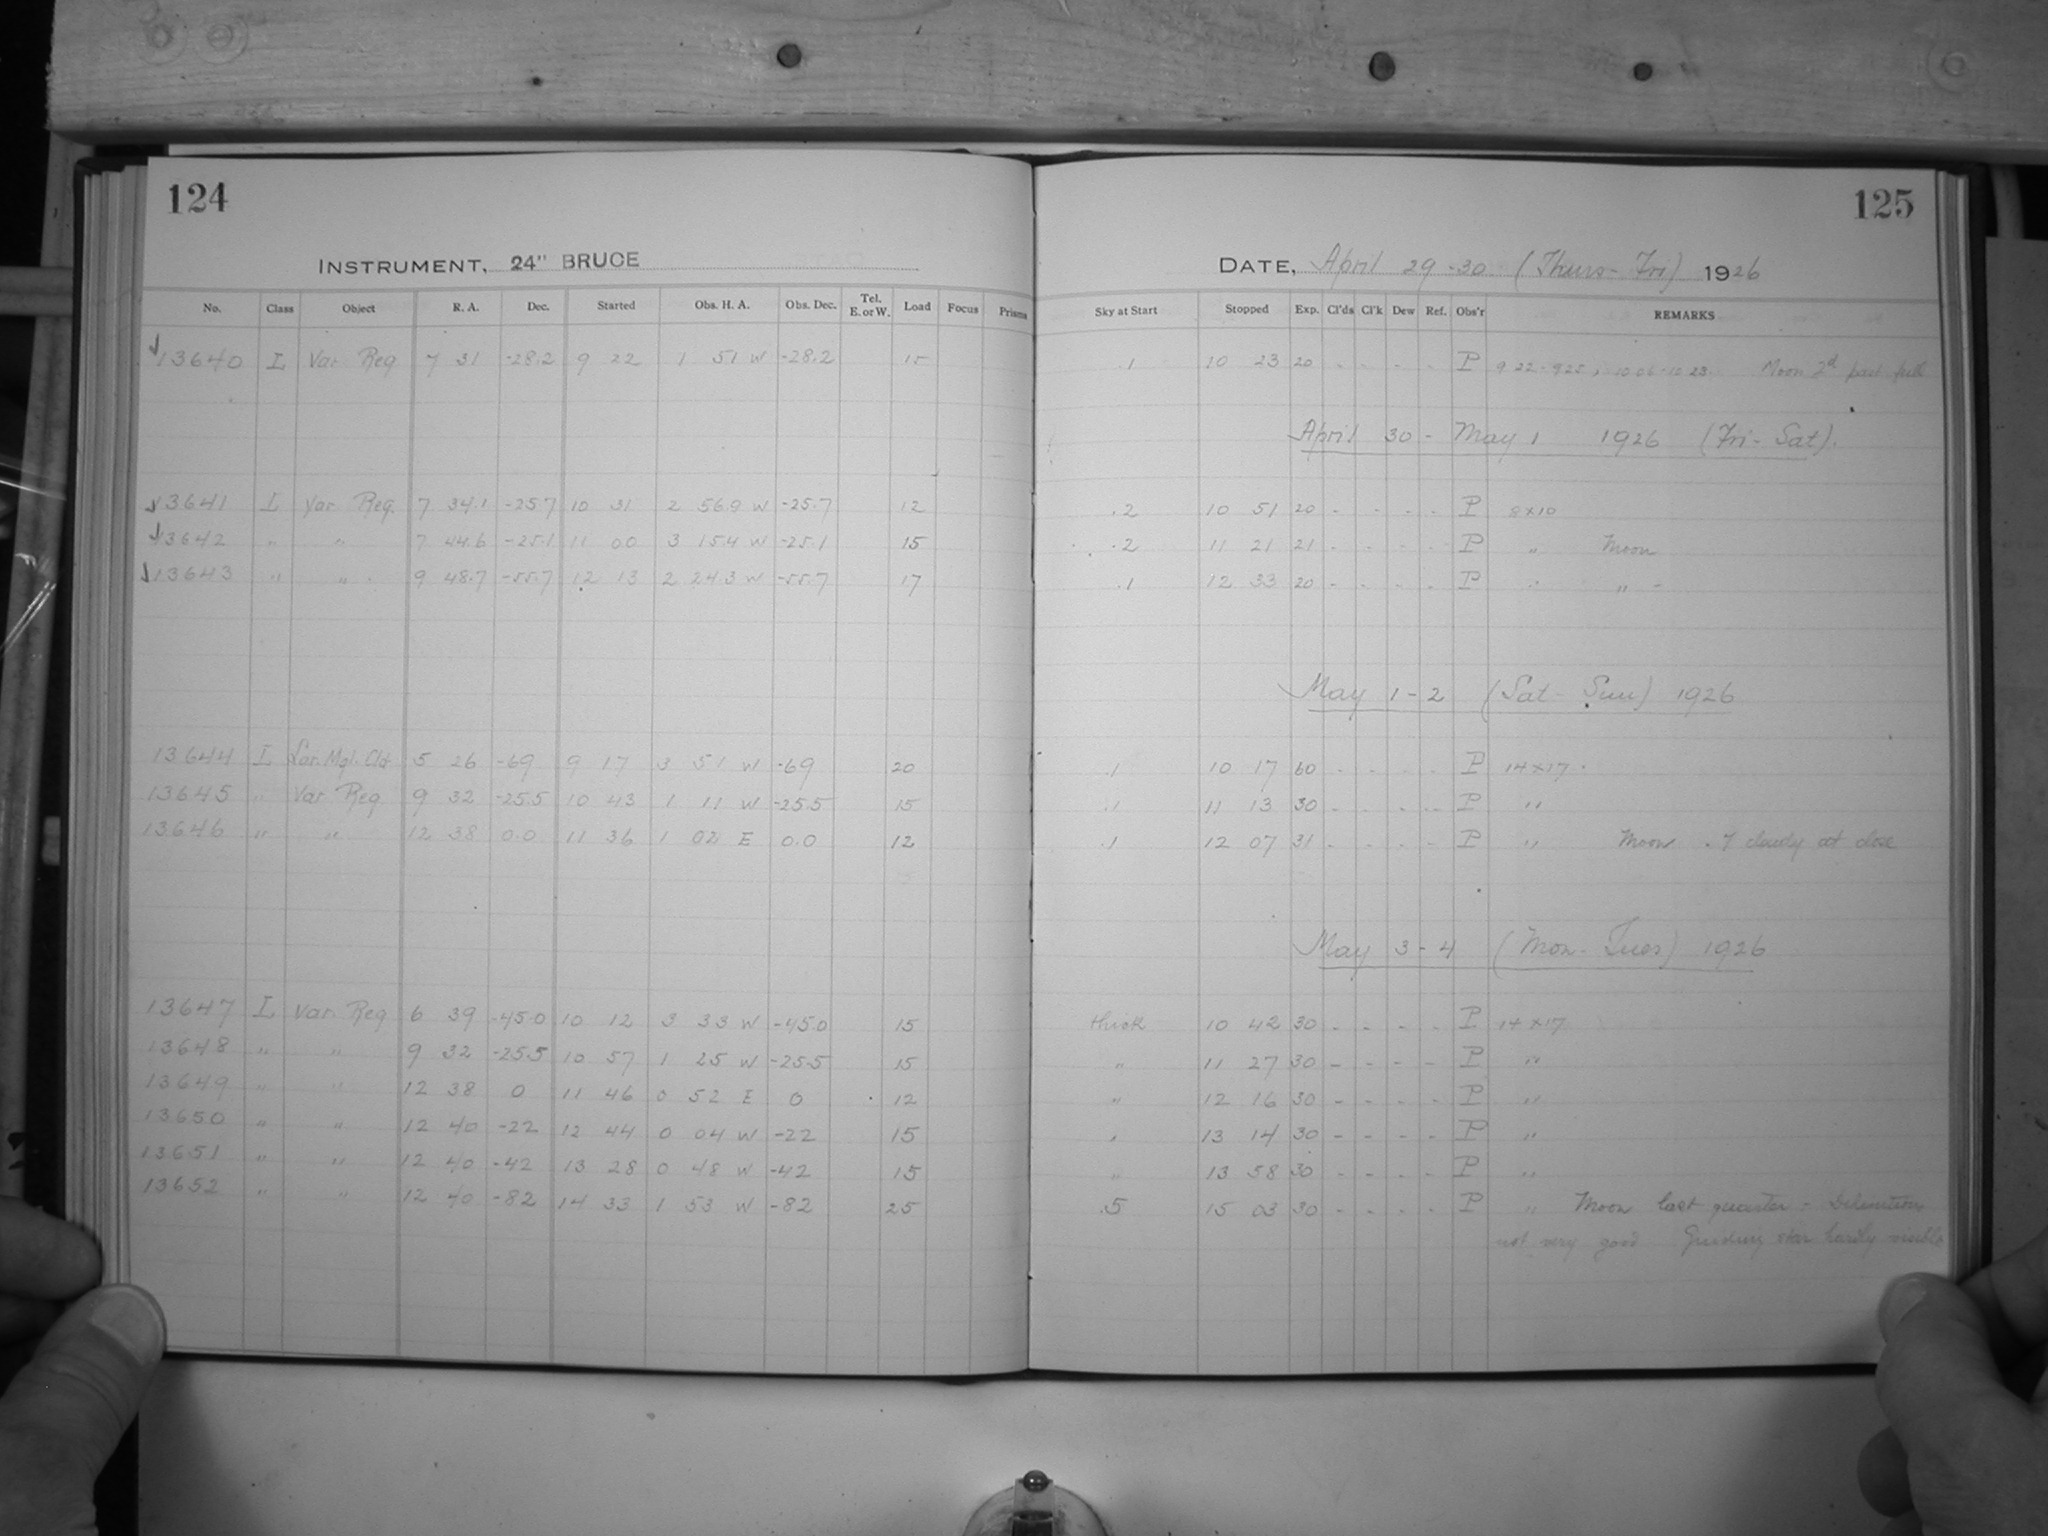 124
INSTRUMENT, 24" BRUCE
No. Class Object R. A. Dec. Started Obs. H. A. Obs. Dec. Tel. E. or W. Load Focus Prisms
13640 I Var Reg 7 31 -28.2 9 22 1 51 W -28.2 15
13641 I Var Reg. 7 34.1 -25.7 10 31 2 56.9 W -25.7 12
13642 " " 7 44.6 -25.1 11 00 3 15.4 W -25.1 15
13643 " " 9 48.7 -55.7 12 13 2 24.3 W -55.7 17
13644 I Lar. Mgl. Cld 5 26 -69 9 17 3 51 W -69 20
13645 " Var Reg 9 32 -25.5 10 43 1 11 W -25.5 15
13646 " " 12 38 0.0 11 36 1 02 E 0.0 12
13647 I Var Reg 6 39 -45.0 10 12 3 33 W -45.0 15
13648 " " 9 32 -25.5 10 57 1 25 W -25.5 15
13649 " " 12 38 0 11 46 0 52 E 0 12
13650 " " 12 40 -22 12 44 0 04 W -22 15
13651 " " 12 40 -42 13 28 0 48 W -42 15
13652 " " 12 40 -82 14 33 1 53 W -82 25
125
DATE, April 29-30 (Thurs-Fri) 1926
Sky at Start Stopped Exp. Cl'ds Cl'k Dew Ref. Obs'r REMARKS
.1 10 23 20 - - - - P 9 22-9 25, 10 06-10 23. Moon 2d past full
April 30 - May 1 1926 (Fri-Sat).
.2 10 51 20 - - - - P 8x10
.2 11 21 21 - - - - P " Moon
.1 12 33 20 - - - - P " " -
May 1-2 (Sat-Sun) 1926
.1 10 17 60 - - - - P 14x17.
.1 11 13 30 - - - - P "
.1 12 07 31 - - - - P " Moon .7 cloudy at close
May 3-4 (Mon-Tues) 1926
thick 10 42 30 - - - - P 14x17
" 11 27 30 - - - - P "
" 12 16 30 - - - - P "
" 13 14 30 - - - - P "
" 13 58 30 - - - - P "
.5 15 03 30 - - - - P " Moon last quarter - Definition
not very good Guiding star hardly visible